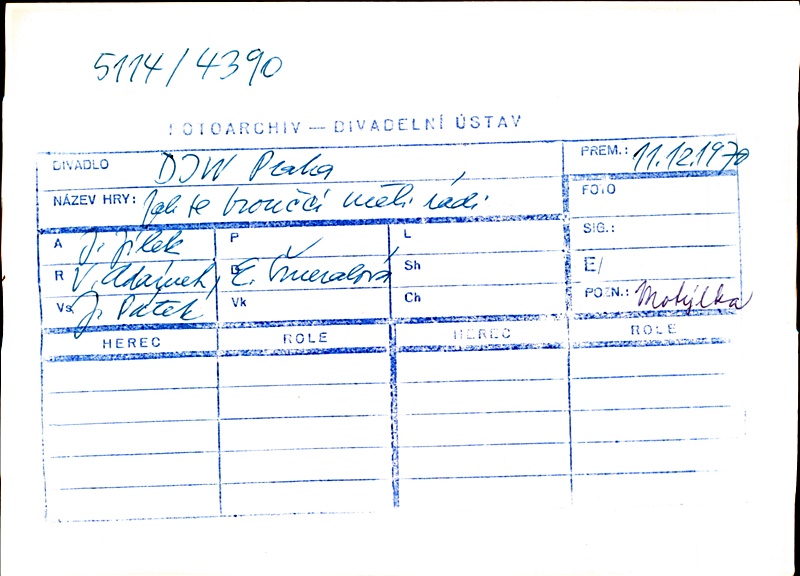 5114/4390
FOTOARCHIV — DIVADELNÍ ÚSTAV
DIVADLO DJW Praha
PREM.: 11.12.1970
NÁZEV HRY: Jak se broučci měli rádi
FOTO
A J. Jílek P L
SIG.:
R V. Adámek, E. Šmeralová Sh
E/
Vs J. Patek Vk Ch
POZN.: Motýlka
HEREC ROLE HEREC ROLE